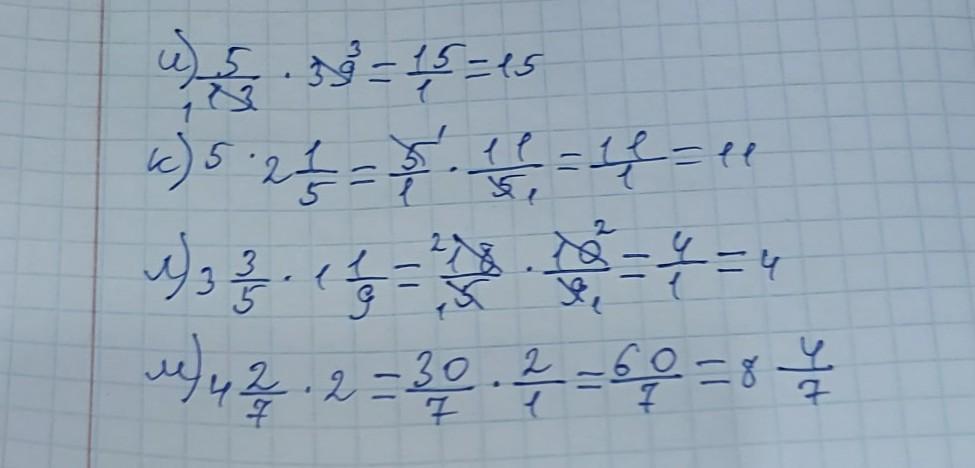 и) 5/13 · 39 = 15/1 = 15
к) 5 · 2 1/5 = 5/1 · 11/5 = 11/1 = 11
л) 3 3/5 · 1 1/9 = 18/5 · 10/9 = 4/1 = 4
м) 4 2/7 · 2 = 30/7 · 2/1 = 60/7 = 8 4/7